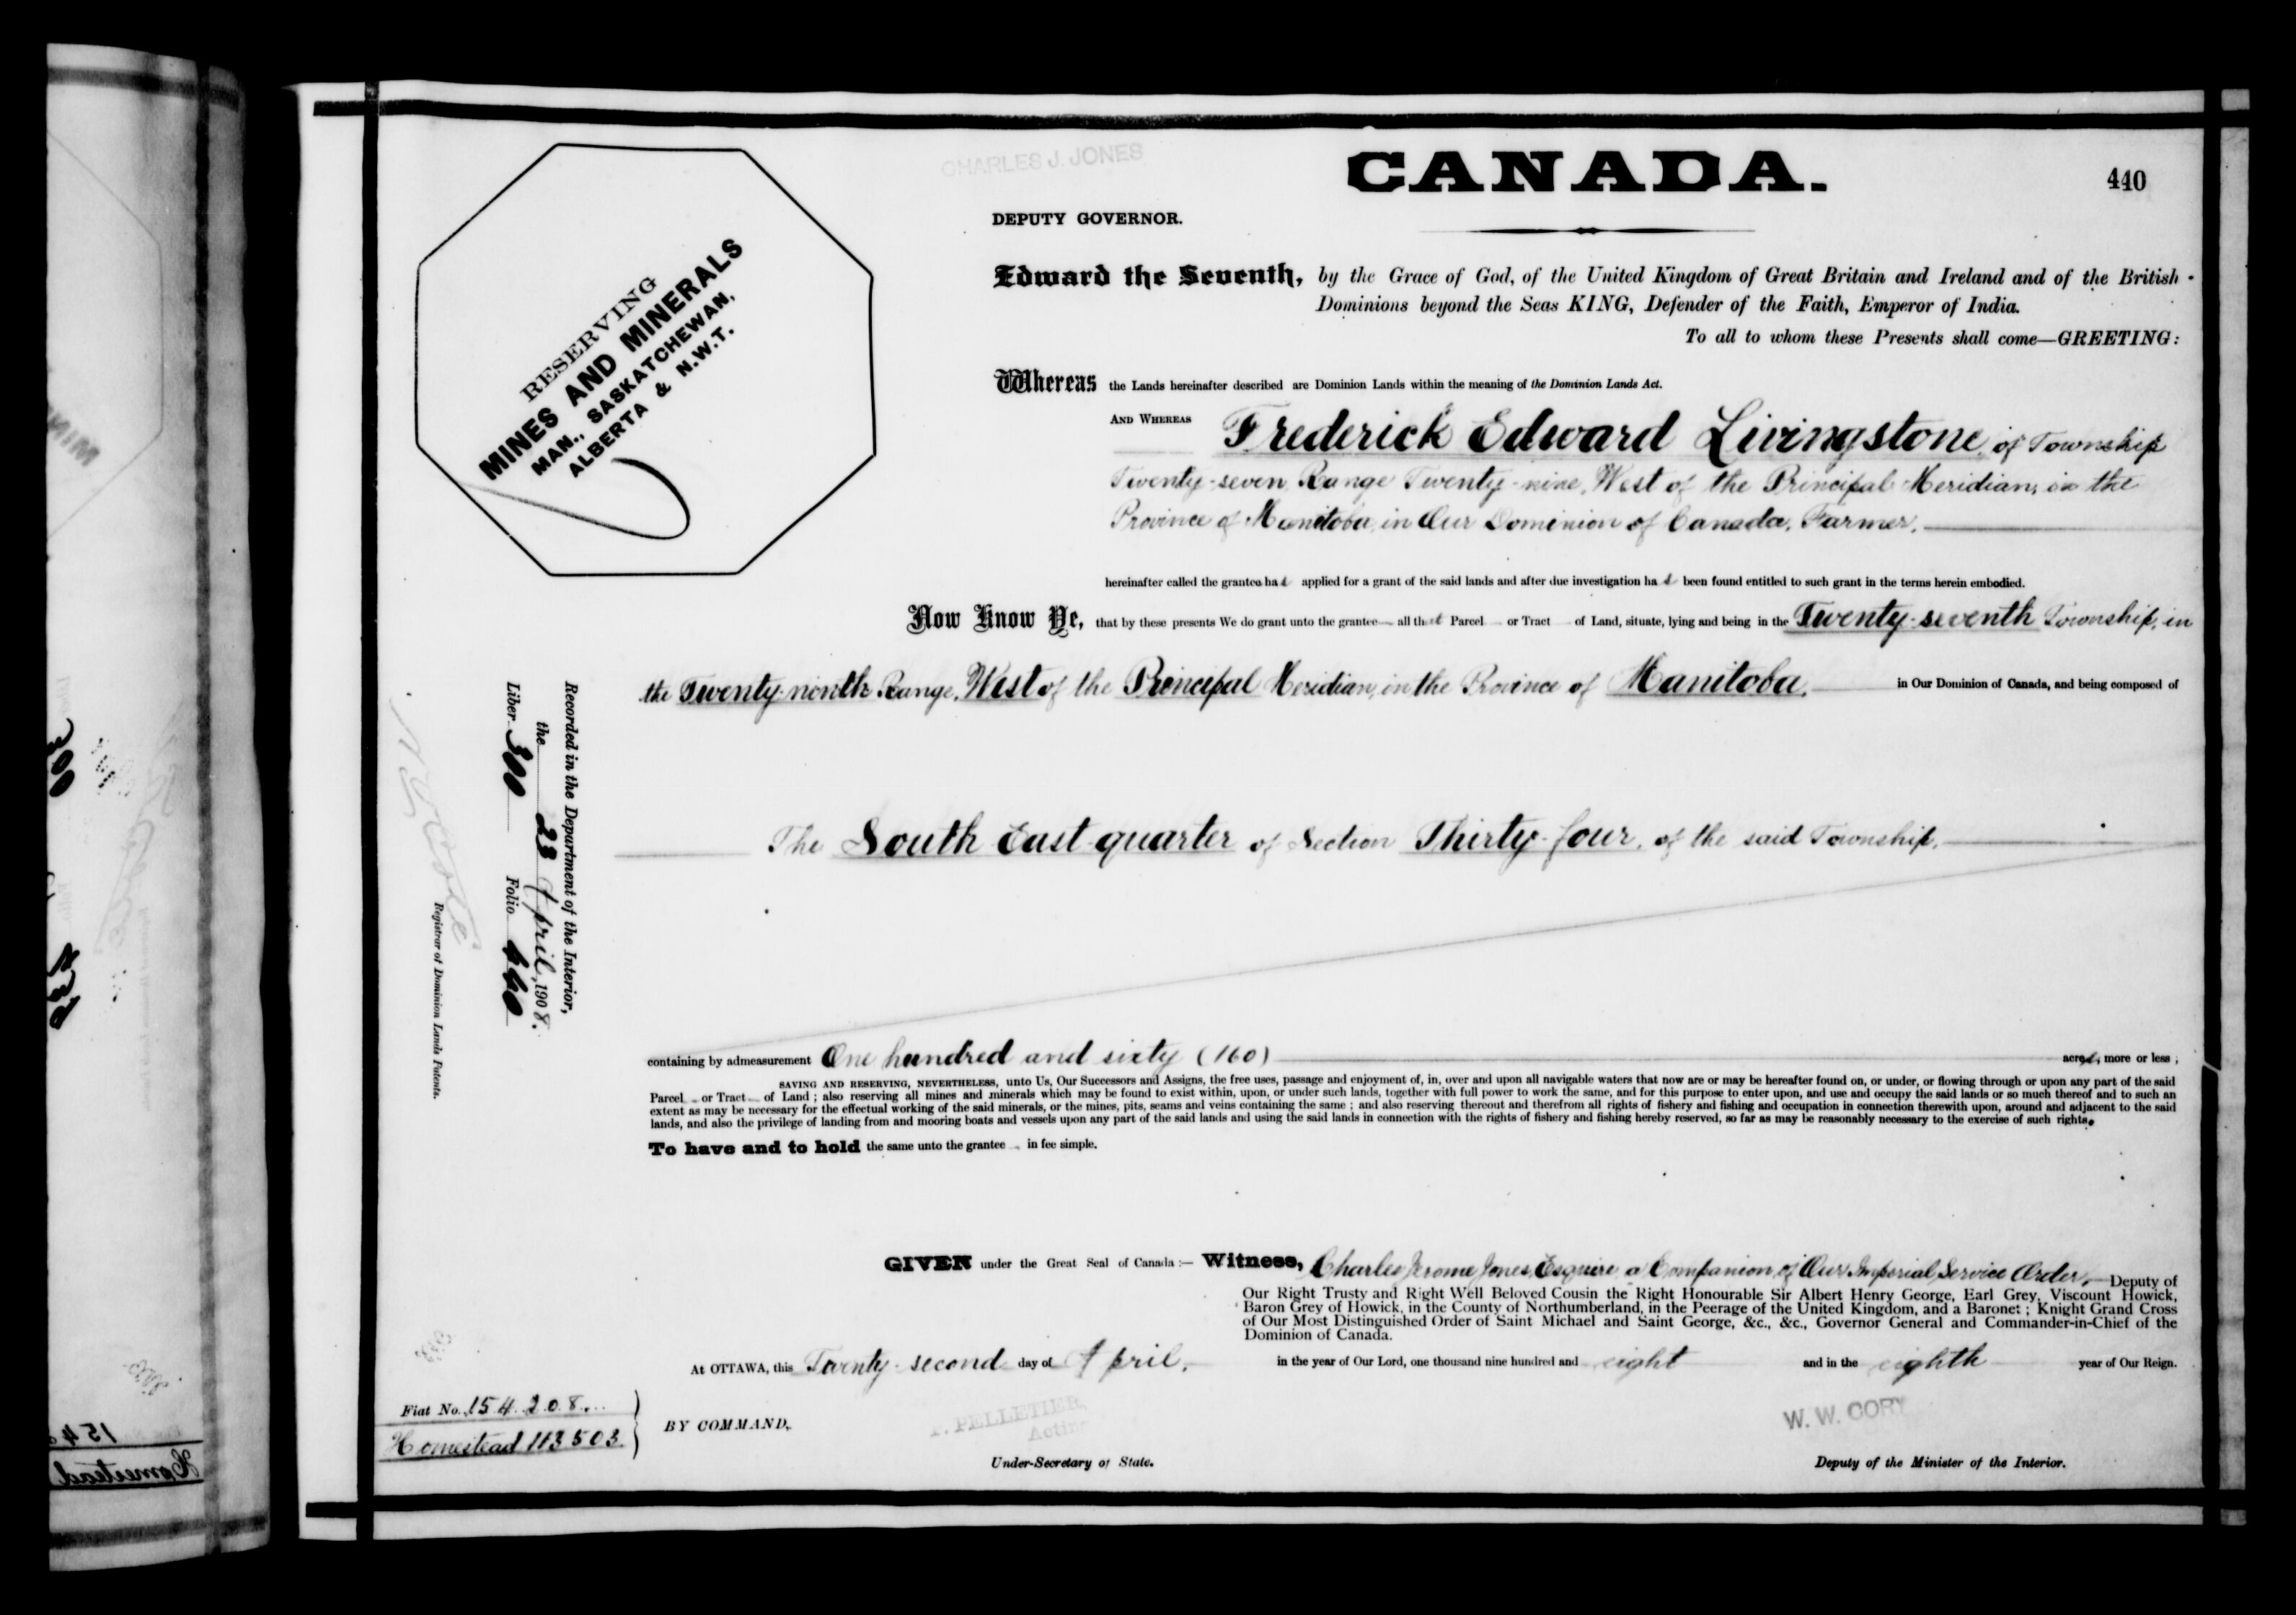 CHARLES J. JONES
CANADA.
440
DEPUTY GOVERNOR.
RESERVING
MINES AND MINERALS
MAN., SASKATCHEWAN,
ALBERTA & N.W.T.
Edward the Seventh, by the Grace of God, of the United Kingdom of Great Britain and Ireland and of the British
Dominions beyond the Seas KING, Defender of the Faith, Emperor of India.
To all to whom these Presents shall come—GREETING:
Whereas the Lands hereinafter described are Dominion Lands within the meaning of the Dominion Lands Act.
AND WHEREAS Frederick Edward Livingstone, of Township
Twenty-seven, Range Twenty-nine, West of the Principal Meridian, in the
Province of Manitoba, in Our Dominion of Canada, Farmer,
hereinafter called the grantee has applied for a grant of the said lands and after due investigation has been found entitled to such grant in the terms herein embodied.
Now Know Ye, that by these presents We do grant unto the grantee all that Parcel or Tract of Land, situate, lying and being in the Twenty-seventh Township, in
the Twenty-ninth Range, West of the Principal Meridian, in the Province of Manitoba, in Our Dominion of Canada, and being composed of
The South East quarter of Section Thirty-four, of the said Township,
Recorded in the Department of the Interior,
the 28 April, 1908.
Liber 300 Folio 440
Registrar of Dominion Lands Patents.
containing by admeasurement One hundred and sixty (160) acres, more or less ;
SAVING AND RESERVING, NEVERTHELESS, unto Us, Our Successors and Assigns, the free uses, passage and enjoyment of, in, over and upon all navigable waters that now are or may be hereafter found on, or under, or flowing through or upon any part of the said
Parcel or Tract of Land ; also reserving all mines and minerals which may be found to exist within, upon, or under such lands, together with full power to work the same, and for this purpose to enter upon, and use and occupy the said lands or so much thereof and to such an
extent as may be necessary for the effectual working of the said minerals, or the mines, pits, seams and veins containing the same ; and also reserving thereout and therefrom all rights of fishery and fishing and occupation in connection therewith upon, around and adjacent to the said
lands, and also the privilege of landing from and mooring boats and vessels upon any part of the said lands and using the said lands in connection with the rights of fishery and fishing hereby reserved, so far as may be reasonably necessary to the exercise of such rights.
To have and to hold the same unto the grantee in fee simple.
GIVEN under the Great Seal of Canada :— Witness, Charles Jerome Jones, Esquire, a Companion of Our Imperial Service Order, Deputy of
Our Right Trusty and Right Well Beloved Cousin the Right Honourable Sir Albert Henry George, Earl Grey, Viscount Howick,
Baron Grey of Howick, in the County of Northumberland, in the Peerage of the United Kingdom, and a Baronet ; Knight Grand Cross
of Our Most Distinguished Order of Saint Michael and Saint George, &c., &c., Governor General and Commander-in-Chief of the
Dominion of Canada.
At OTTAWA, this Twenty-second day of April, in the year of Our Lord, one thousand nine hundred and eight and in the eighth year of Our Reign.
Fiat No. 154208
Homestead 113503.
BY COMMAND,
P. PELLETIER,
Acting
W. W. CORY
Under-Secretary of State.
Deputy of the Minister of the Interior.